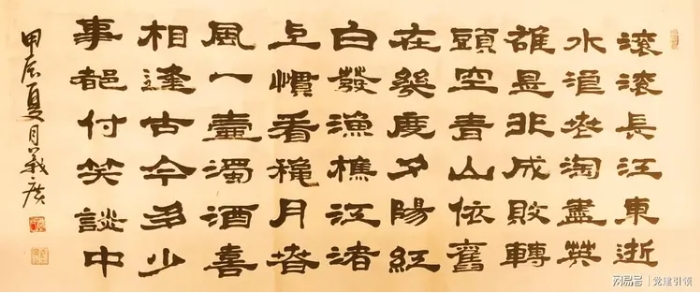 滚滚長江東逝
水浪花淘盡英
雄是非成敗轉
頭空青山依舊
在幾度夕陽紅
白發漁樵江渚
上慣看穐月春
風一壺濁酒喜
相逢古今多少
事都付笑談中
甲辰夏月義廣
网易号 | 党建引领